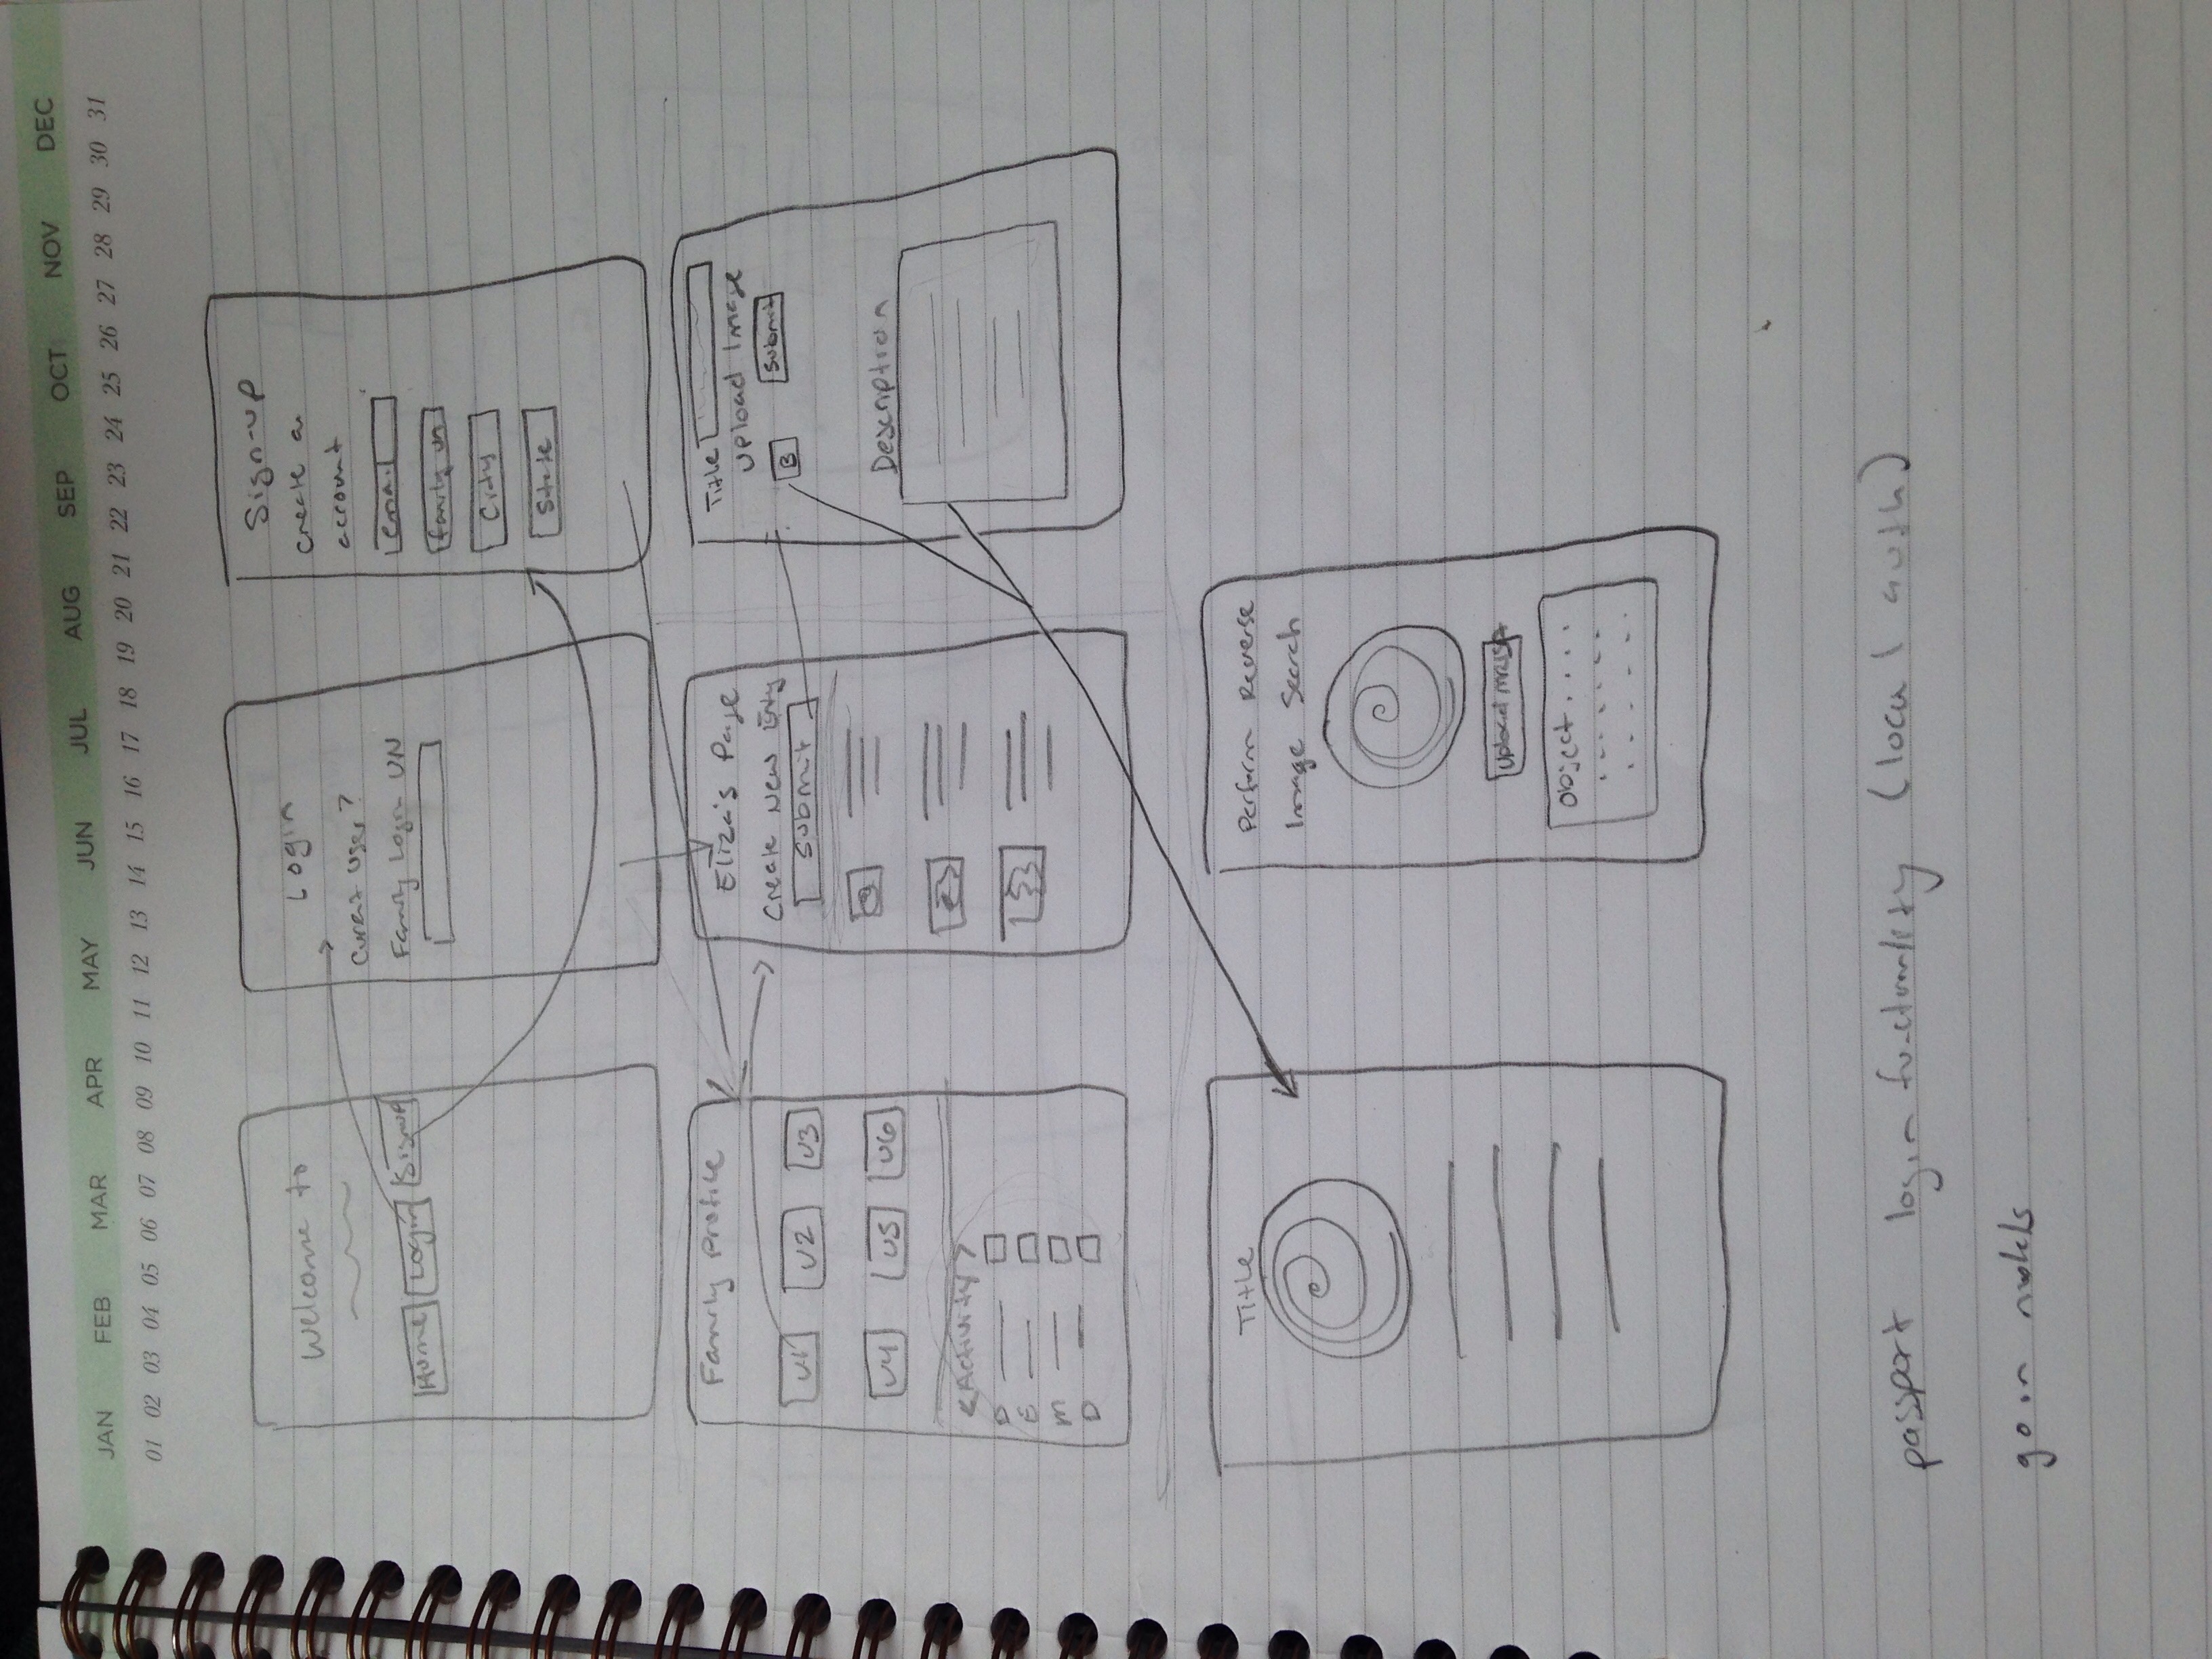 JAN FEB MAR APR MAY JUN JUL AUG SEP OCT NOV DEC
01 02 03 04 05 06 07 08 09 10 11 12 13 14 15 16 17 18 19 20 21 22 23 24 25 26 27 28 29 30 31
Welcome to
Home Login Signup
Login
Curent User?
Family Login UN
Sign-up
Create an
account
email
family un
City
State
Family Profile
U1 U2 U3
U4 U5 U6
<Activity>
D
E
M
D
Eliza's Page
Create New Enty
Submit
Title
Upload Image
B Submit
Description
Title
Perform Reverse
Image Search
Upload
Object....
passport login functionality (local auth)
go in models